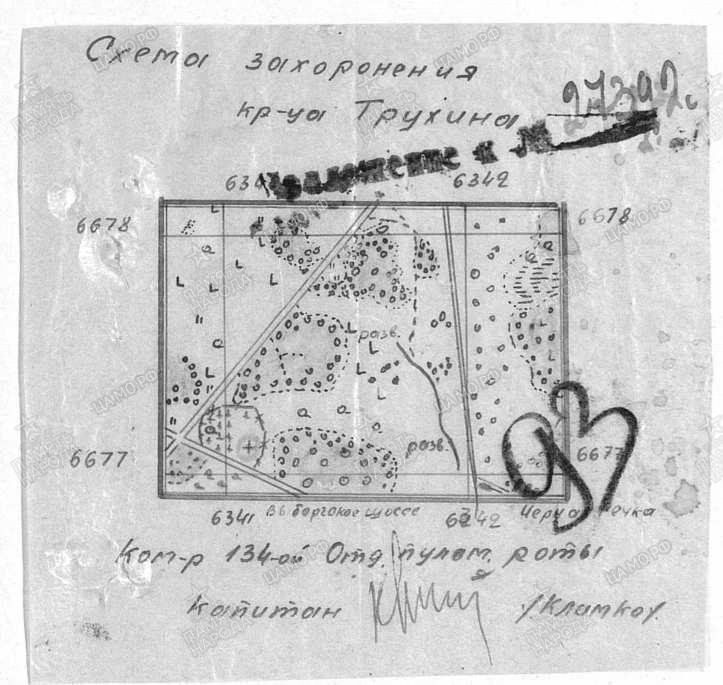 Схема захоронения
кр-ца Трухина
27392с
Приложение к №
6341 6342
6678 6678
разв.
разв.
6677 6677
6341 Выборгское шоссе 6342 Черная речка
93
Ком-р 134-ой Отд. пулем. роты
Капитан /Климко/.
ЦАМО РФ
ПАМЯТЬ НАРОДА